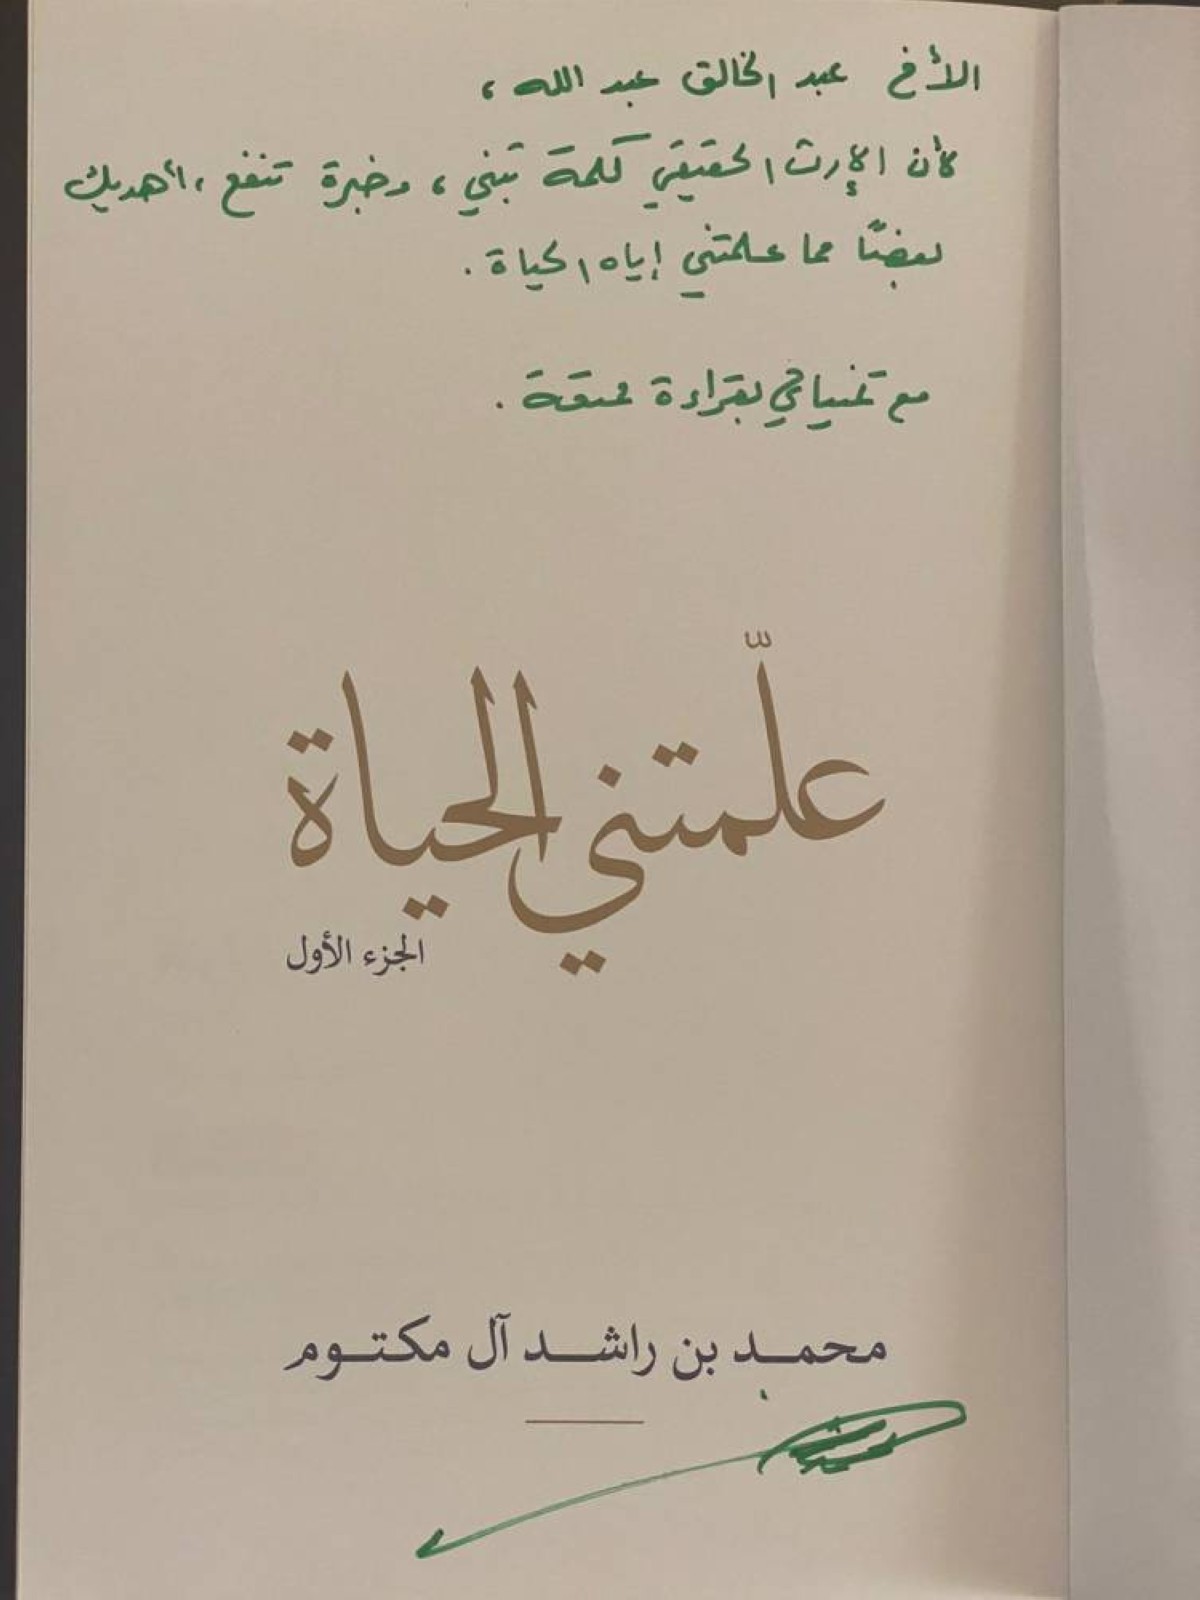 الأخ عبد الخالق عبد الله ،
لأن الإرث الحقيقي كلمة تبني ، وخبرة تنفع ، أهديك
بعضًا مما علمتني إياه الحياة .
مع تمنياتي بقراءة ممتعة .
علّمتني الحياة
الجزء الأول
محمد بن راشد آل مكتوم